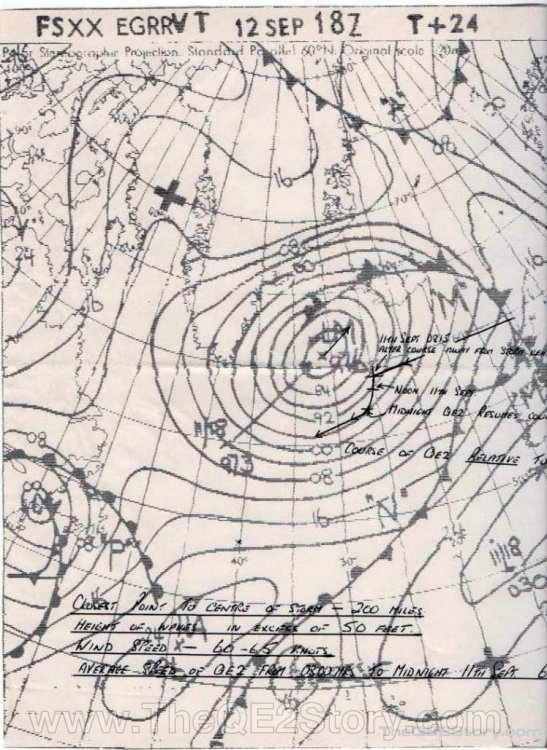 FSXX EGRR VT 12 SEP 18Z T+24
Polar Stereographic Projection. Standard Parallel 60°N. Original scale 1:20m
16
08
08
00
24
16
16
"M"
11TH SEPT. 0815
ALTER COURSE AWAY FROM STORM CEN
NOON 11TH SEPT.
MIDNIGHT QE2 RESUMES COU
84
92
1118
973
00
08
COURSE OF QE2 RELATIVE TO
16
"N"
1118
030
"P"
40°
30°
CLOSEST POINT TO CENTRE OF STORM - 200 MILES
HEIGHT OF WAVES IN EXCESS OF 50 FEET.
WIND SPEED - 60-65 KNOTS
AVERAGE SPEED OF QE2 FROM 0800HRS TO MIDNIGHT 11TH SEPT. 6
www.TheQE2Story.com
TheQE2Story.com